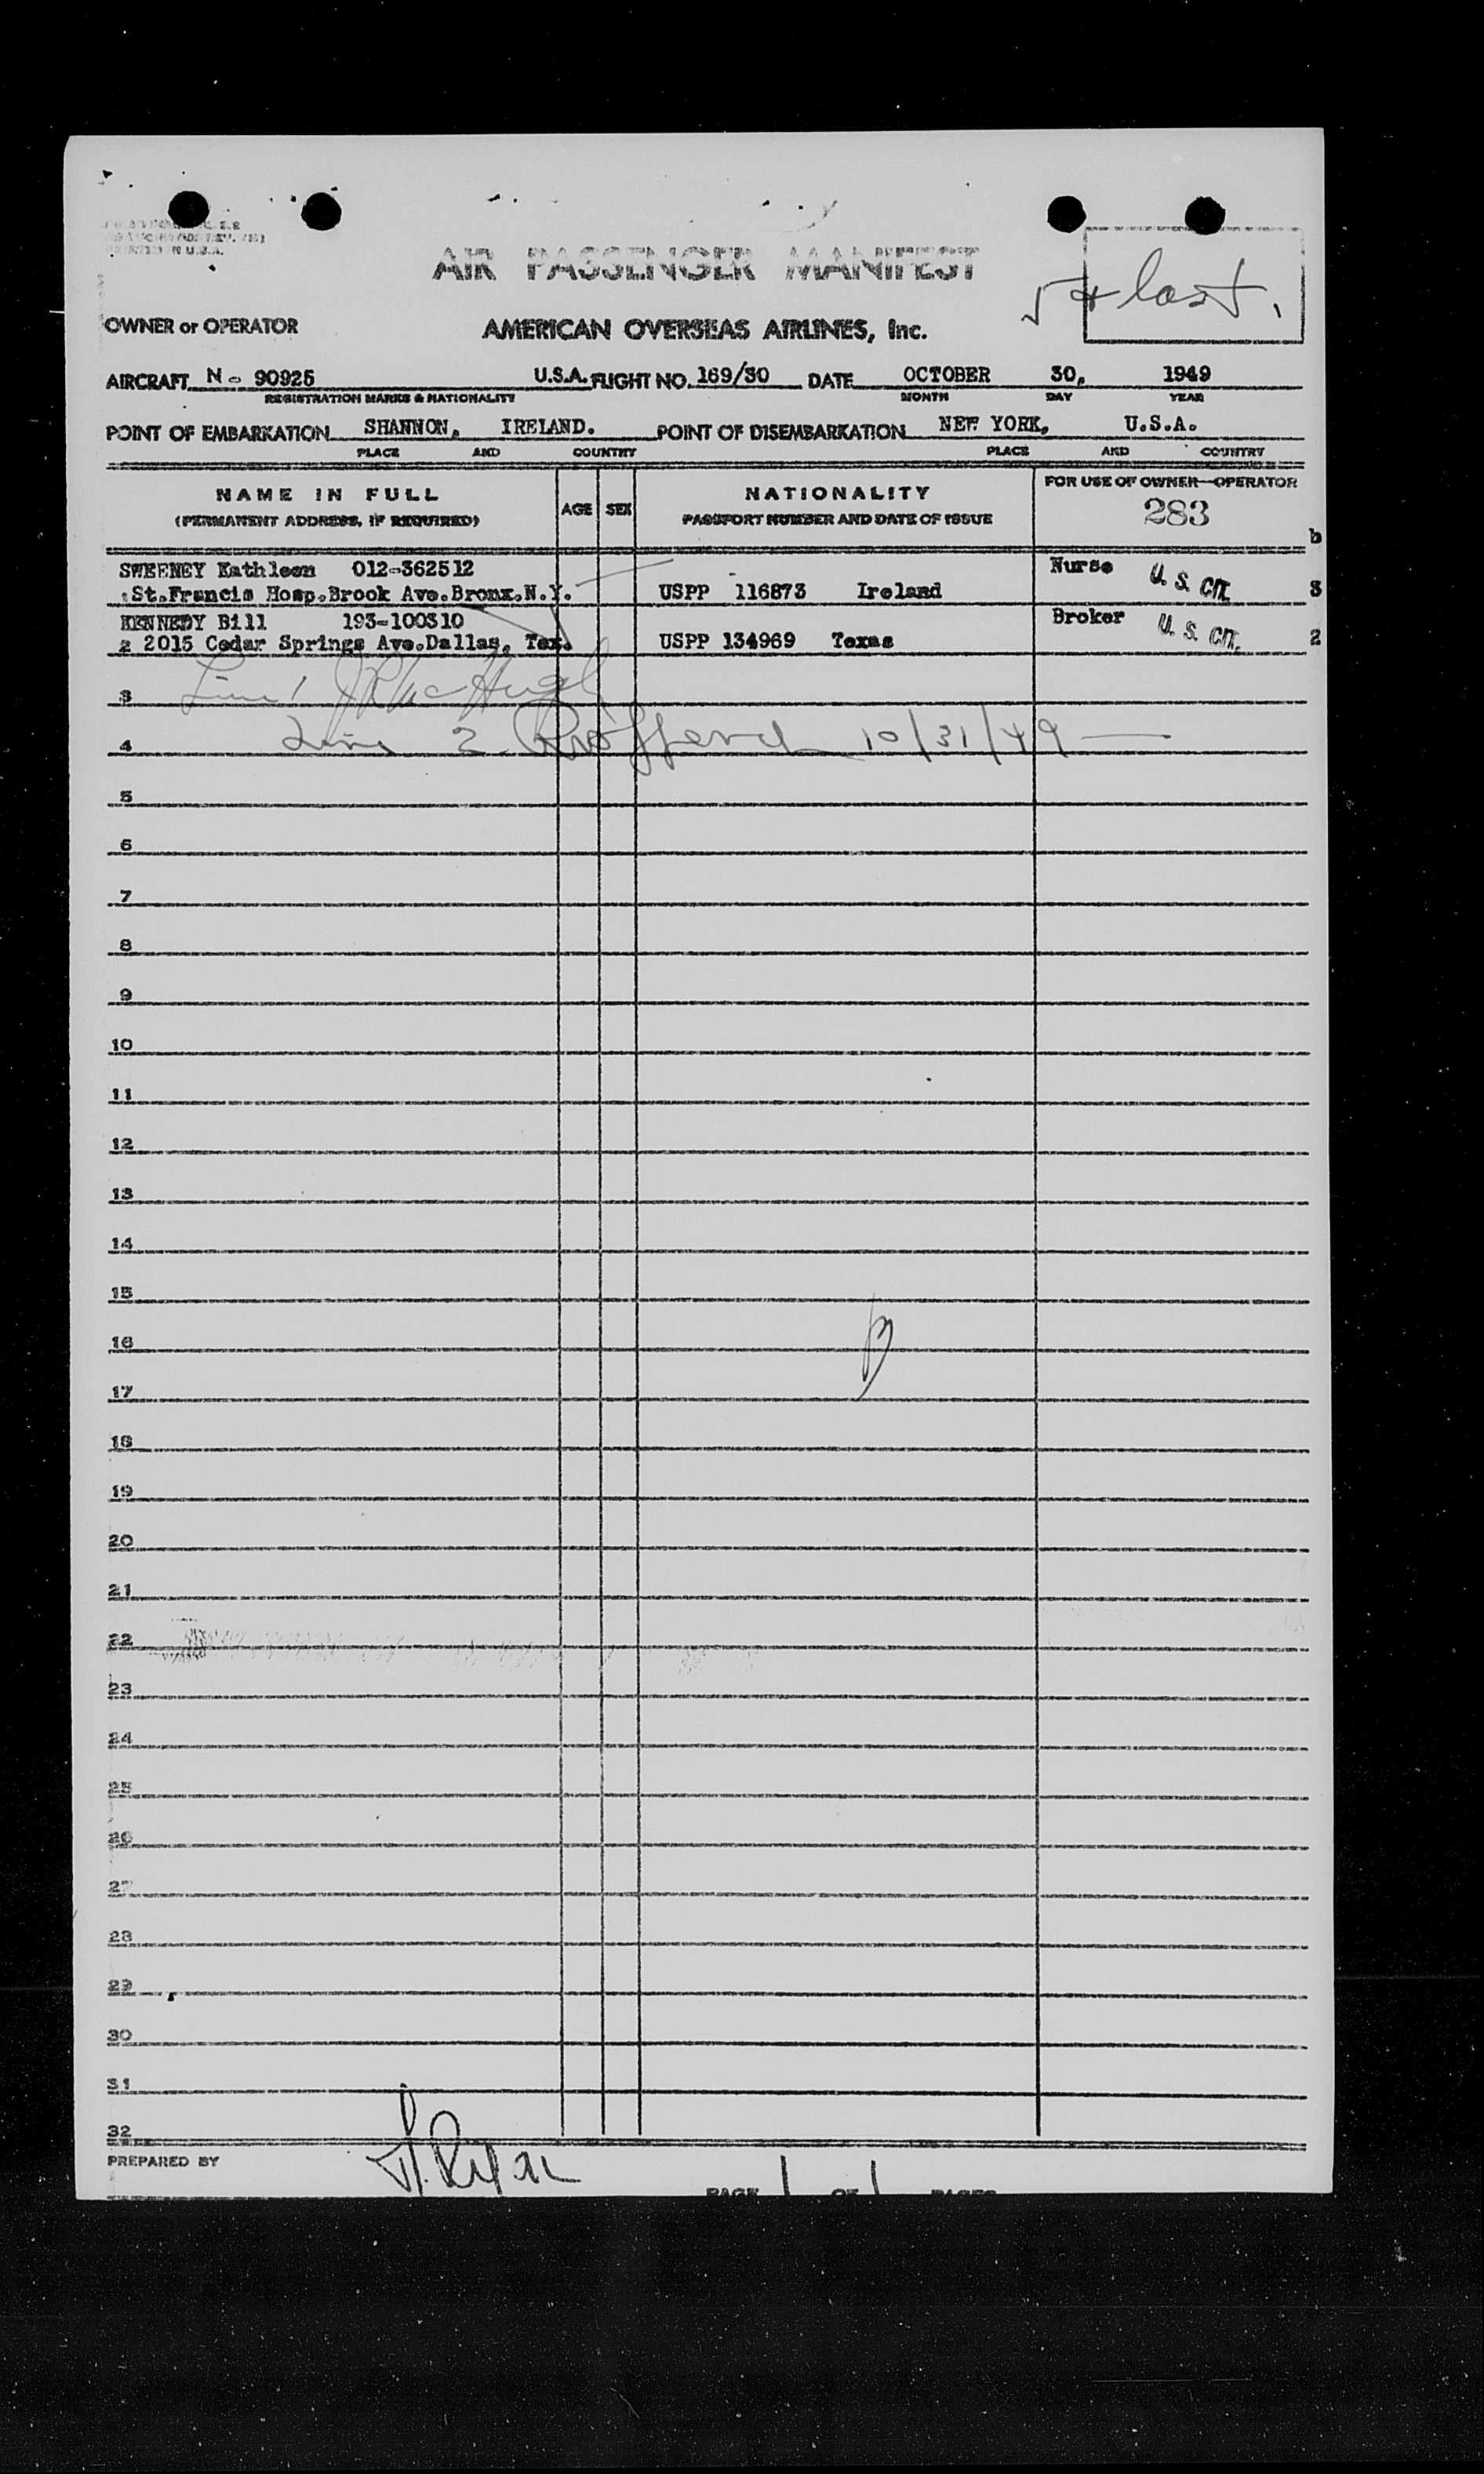 PRINTED IN U.S.A.
AIR PASSENGER MANIFEST
5 & last.
OWNER or OPERATOR AMERICAN OVERSEAS AIRLINES, Inc.
AIRCRAFT N - 90925 U.S.A. FLIGHT NO. 169/30 DATE OCTOBER 30, 1949
REGISTRATION MARKS & NATIONALITY MONTH DAY YEAR
POINT OF EMBARKATION SHANNON, IRELAND. POINT OF DISEMBARKATION NEW YORK, U.S.A.
PLACE AND COUNTRY PLACE AND COUNTRY
NAME IN FULL AGE SEX NATIONALITY FOR USE OF OWNER—OPERATOR
(PERMANENT ADDRESS, IF REQUIRED) PASSPORT NUMBER AND DATE OF ISSUE 283
b
SWEENEY Kathleen 012-362512 Nurse U. S. CIT.
1 St.Francis Hosp.Brook Ave.Bronx.N.Y. USPP 116873 Ireland 3
KENNEDY Bill 193-100310 Broker U. S. CIT.
2 2015 Cedar Springs Ave.Dallas, Tex. USPP 134969 Texas 2
3 Line 1 McHugh
4 Line 2 10/31/49
5
6
7
8
9
10
11
12
13
14
15
16
17
18
19
20
21
22
23
24
25
26
27
28
29
30
31
32
PREPARED BY Ryan
PAGE 1 OF 1 PAGES